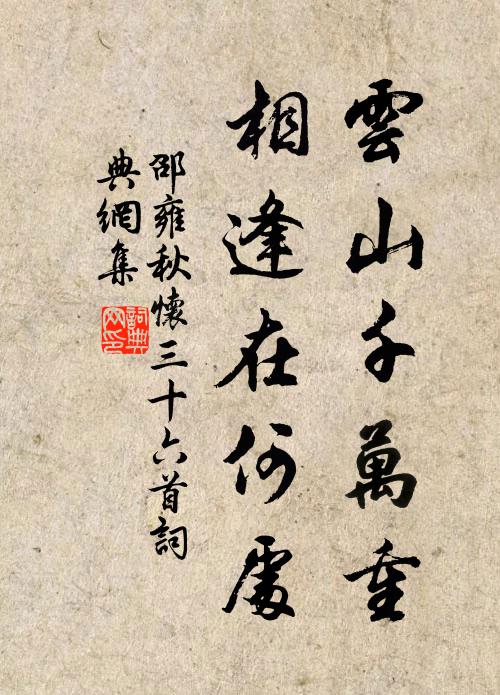 雲山千萬重
相逢在何處
邵雍秋懷三十六首詞
典網集
詞典
网印